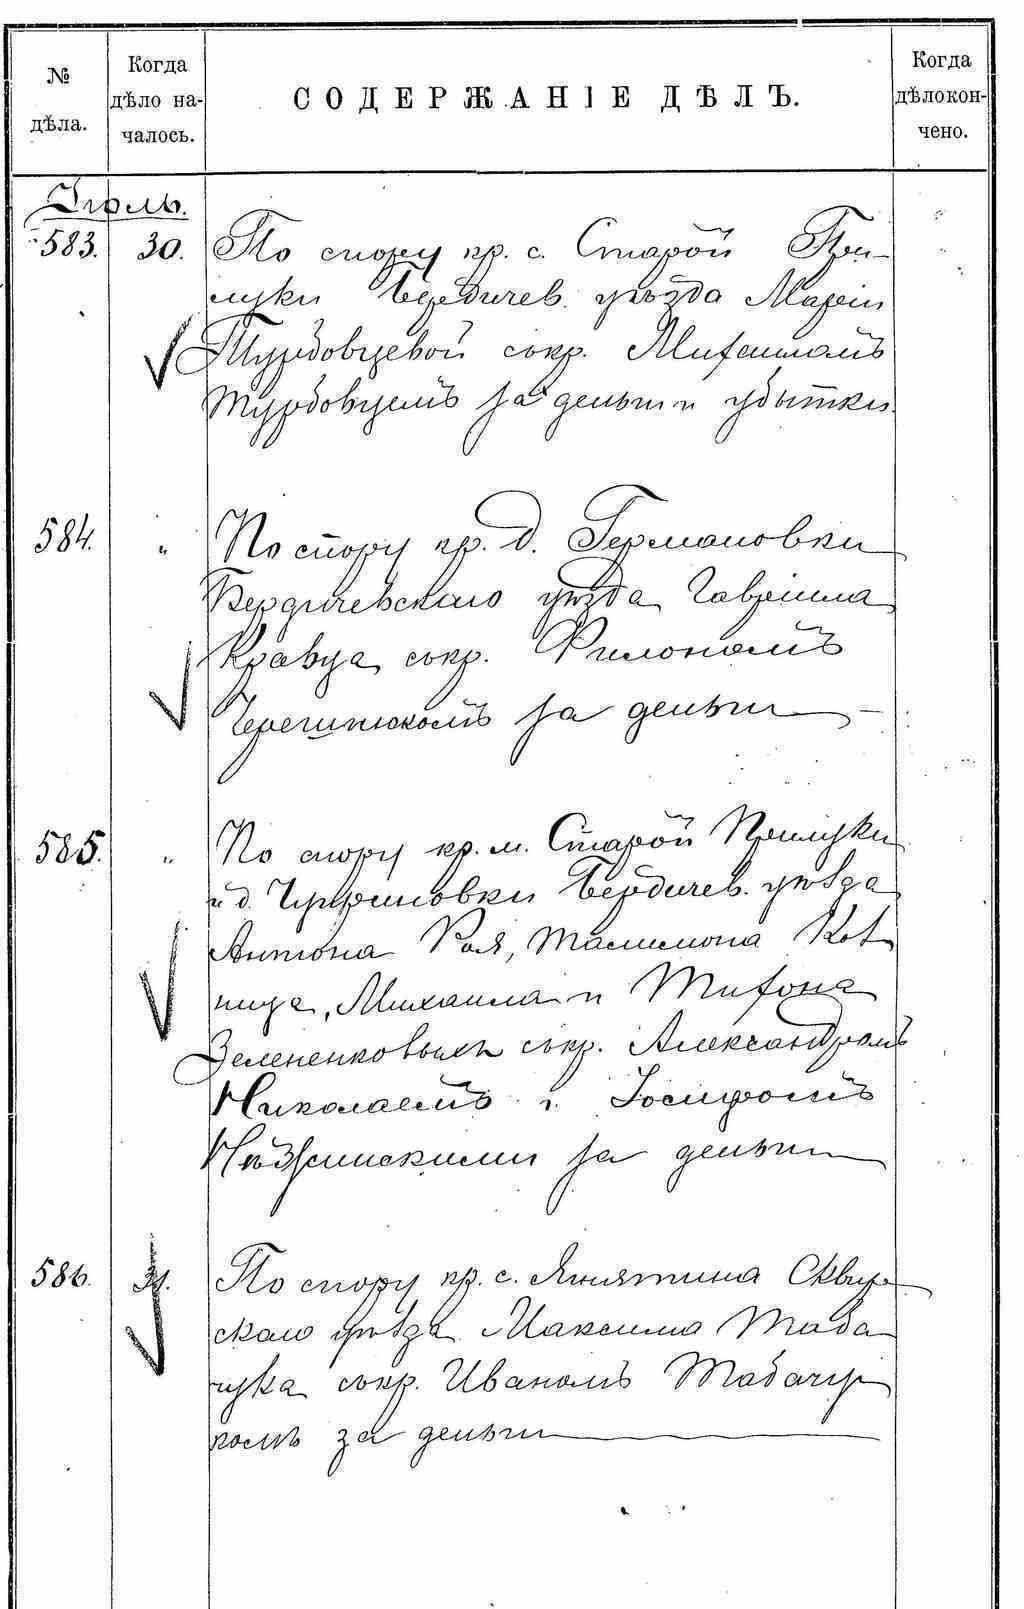 № дѣла.
Когда дѣло на-
чалось.
СОДЕРЖАНІЕ ДѢЛЪ.
Когда дѣло кон-
чено.
Іюль.
583. 30. По спору кр. с. Старой При-
луки Бердичев. уѣзда Маріи
Турбовцевой с кр. Михаиломъ
Турбовцемъ за деньги и убытки.
584. " По спору кр. д. Германовки
Бердичевскаго уѣзда Гавріила
Кравца с кр. Филономъ
за деньги
585. " По спору кр. м. Старой Прилуки
и д. Бердичев. уѣзда
Антона Коя,
Михаила и Тихона
Зелененковыхъ с кр. Александромъ
Николаемъ и Іосифомъ
Нѣжинскими за деньги
586. 31. По спору кр. с. Ягнятина Сквир-
скаго уѣзда Максима Таба-
чука с кр. Иваномъ Табачу-
комъ за деньги